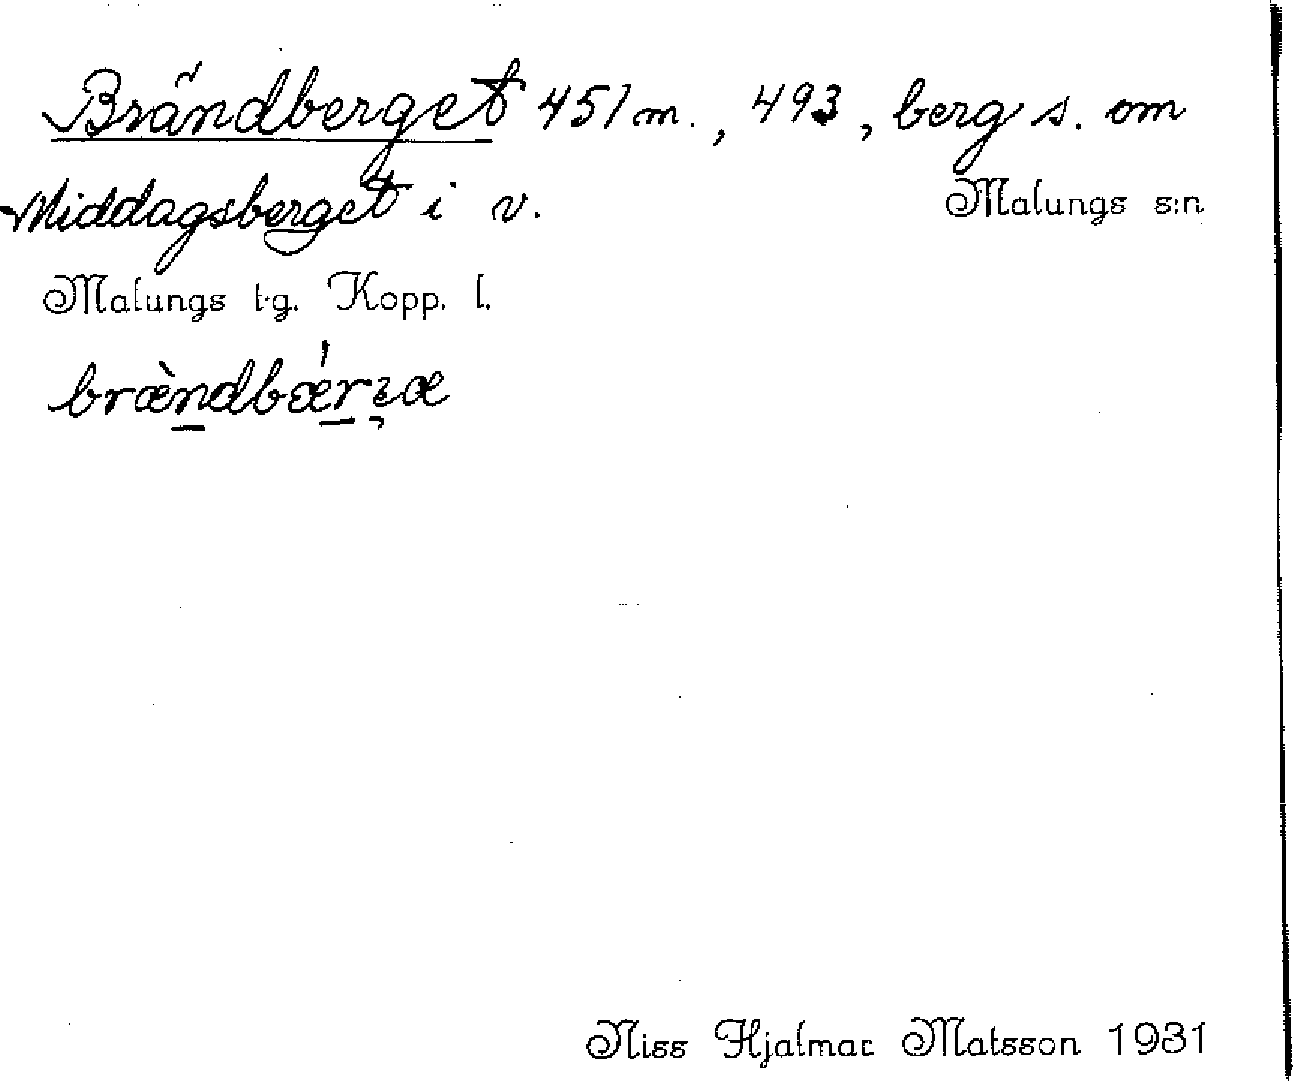 Brändberget 451 m., 493, berg s. om
Middagsberget i v.
Malungs s:n
Malungs t.g. Kopp. l.
Niss Hjalmar Matsson 1931